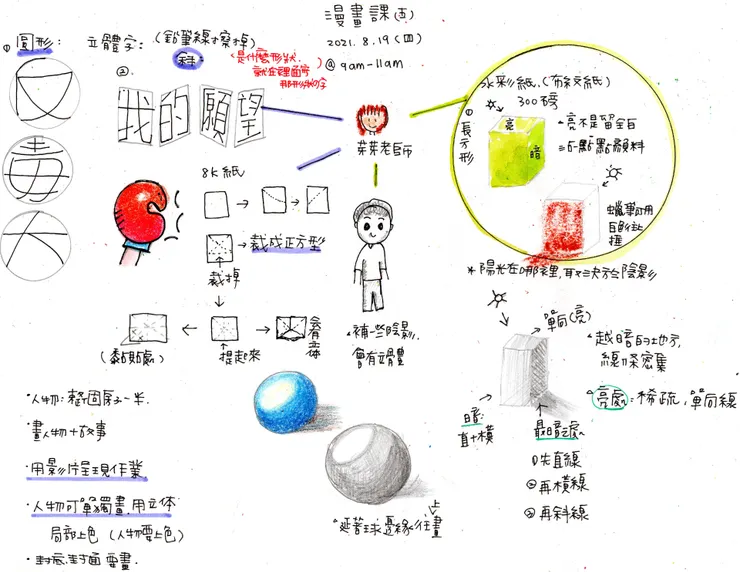 漫畫課(五)
2021. 8. 19 (四)
@ 9am-11am
① 圓形:
立體字:(鉛筆線擦掉)
是什麼形狀,
就在裡面寫
那形狀的字
②
我的願望
菜菜老師
8K紙
裁成正方型
裁掉
提起來
會有立體
(黏貼處)
補一些陰影,
會有立體
水彩紙,(布紋紙)
300磅
① 長方形
亮
暗
亮不是留全白
=6點點顏料
蠟筆可用
* 陽光在哪裡,取決於陰影
單向(亮)
越暗的地方,
線條密集
亮處:稀疏,單向線
暗:
直+橫
最暗處,
①先直線
②再橫線
③再斜線
延著球邊緣往上畫
·人物:整個房子一半.
·畫人物+故事
·用影片呈現作業
·人物可單獨畫,用立體
局部上色 (人物要上色)
·封底,封面要畫.